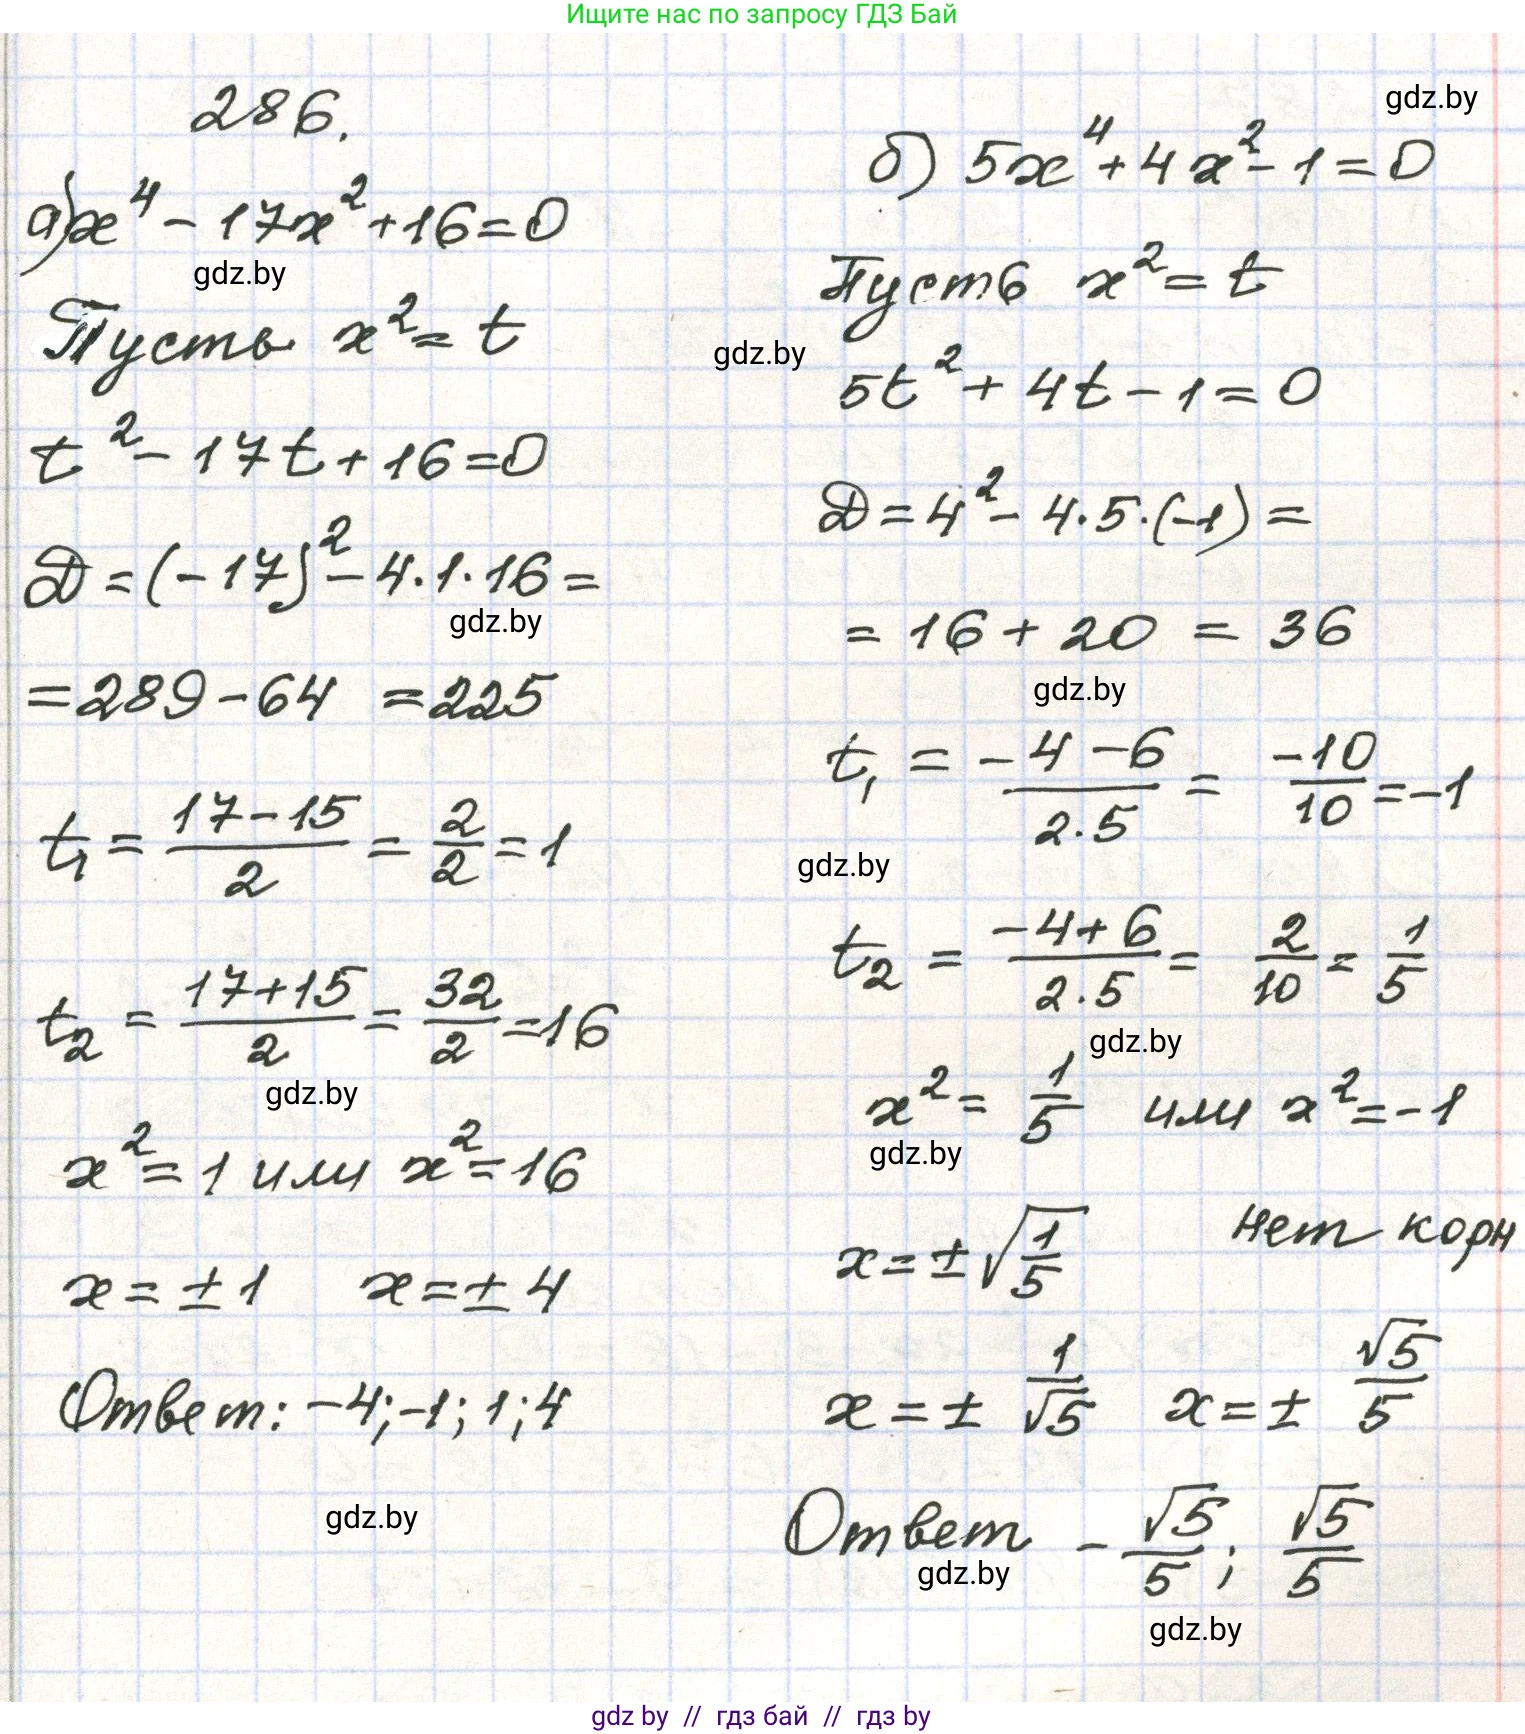 Ищите нас по запросу ГДЗ Бай
286.
а) x⁴ - 17x² + 16 = 0
gdz.by
Пусть x² = t
t² - 17t + 16 = 0
D = (-17)² - 4·1·16 =
gdz.by
= 289 - 64 = 225
t₁ = (17-15)/2 = 2/2 = 1
t₂ = (17+15)/2 = 32/2 = 16
gdz.by
x² = 1 или x² = 16
x = ±1 x = ±4
Ответ: -4; -1; 1; 4
gdz.by
gdz.by
б) 5x⁴ + 4x² - 1 = 0
Пусть x² = t
gdz.by
5t² + 4t - 1 = 0
D = 4² - 4·5·(-1) =
= 16 + 20 = 36
gdz.by
t₁ = (-4-6)/(2·5) = -10/10 = -1
gdz.by
t₂ = (-4+6)/(2·5) = 2/10 = 1/5
gdz.by
x² = 1/5 или x² = -1
gdz.by
x = ±√(1/5) нет корн
x = ± 1/√5 x = ± √5/5
Ответ - √5/5; √5/5
gdz.by
gdz.by
gdz by // гдз бай // гдз by